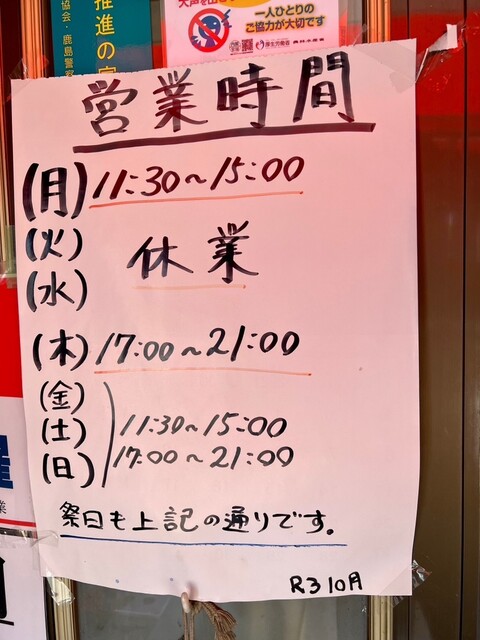 協会・鹿島警察
推進の
一人ひとりの
ご協力が大切です
厚生労働省
営業時間
(月) 11:30～15:00
(火)
休業
(水)
(木) 17:00～21:00
(金)
(土) 11:30～15:00
(日) 17:00～21:00
祭日も上記の通りです。
R3 10月
業